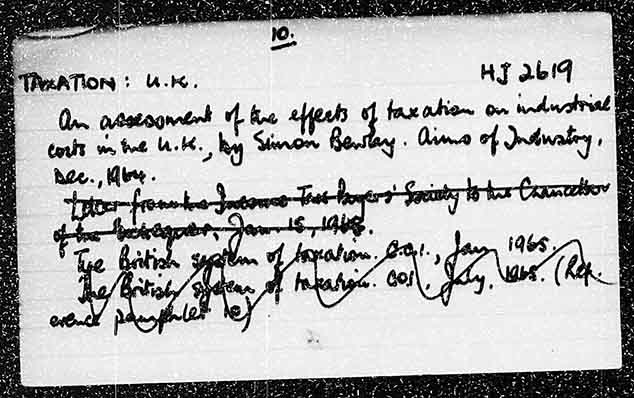 10.
TAXATION: U.K.
HJ 2619
An assessment of the effects of taxation on industrial
costs in the U.K., by Simon Bewlay. Aims of Industry,
Dec., 1964.
Letter from the Income Tax Payers' Society to the Chancellor
of the Exchequer, Jan. 15, 1965.
The British system of taxation. C.O.I., Jan 1965.
The British system of taxation. COI, July, 1965. (Ref.
erence pamphlet